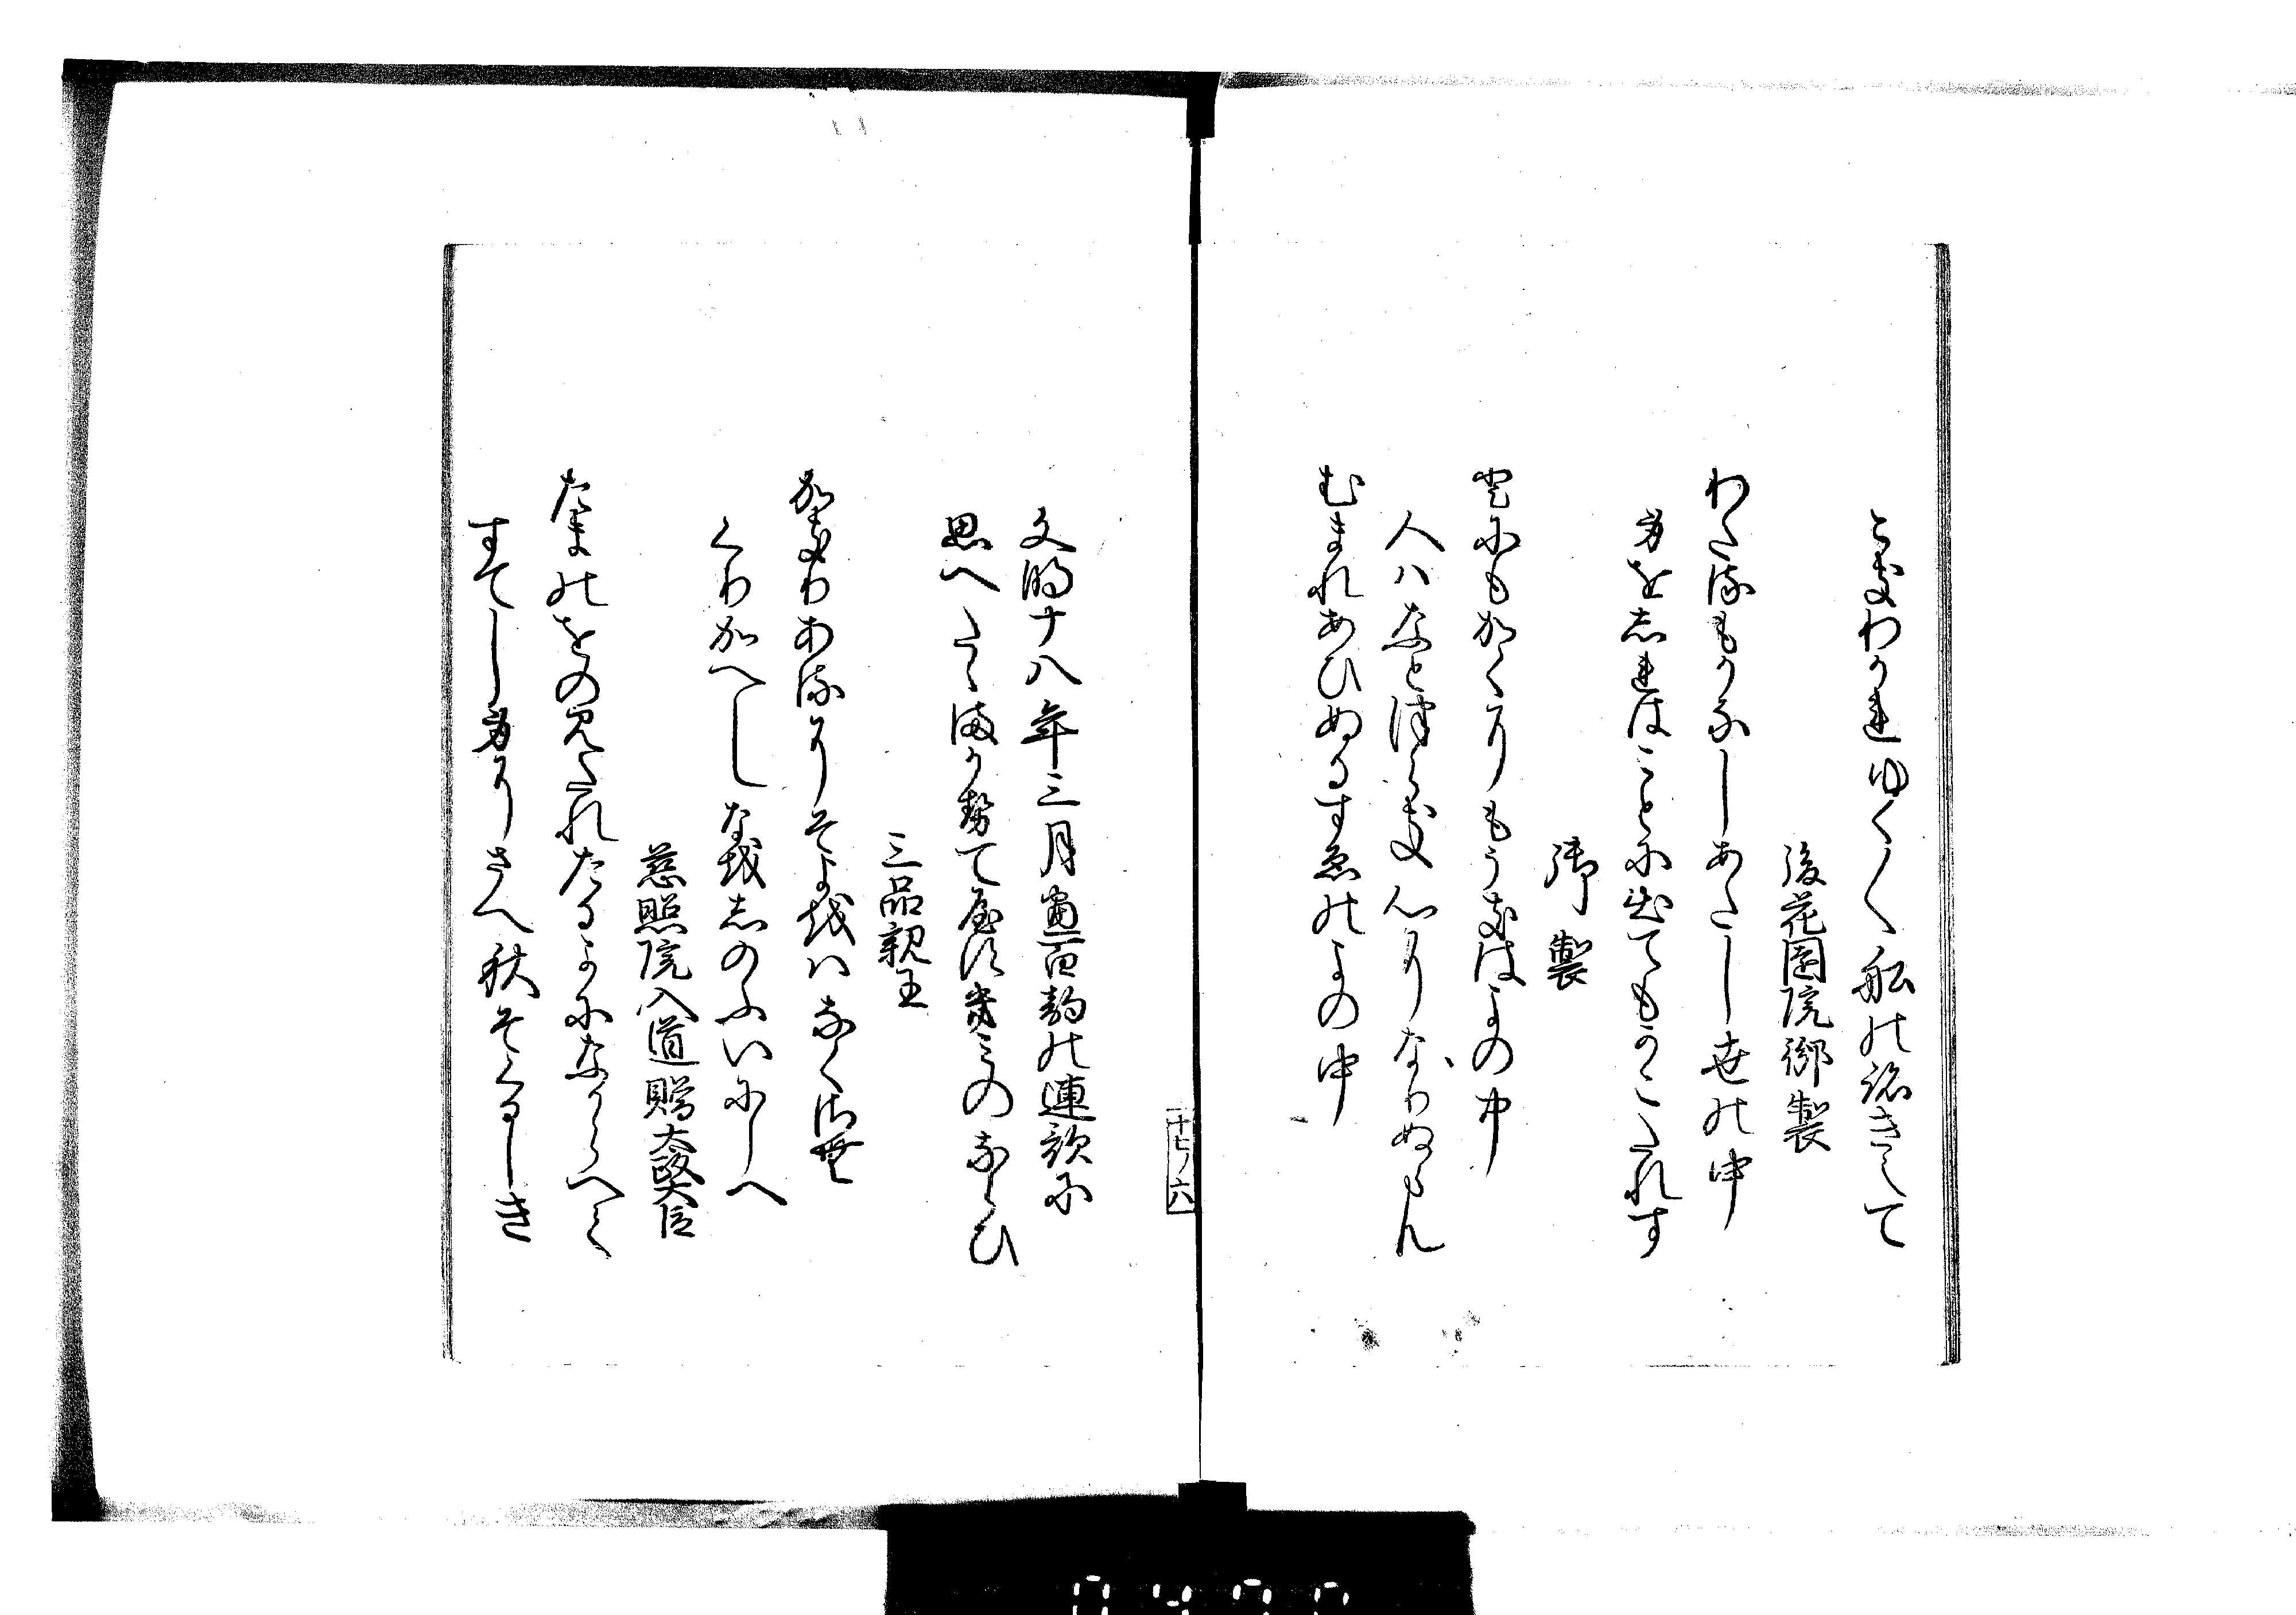 こきわかれゆく〳〵船の跡きえて
後花園院御製
わたるもかなしあたし世の中
身を志れはことに出てもかこたれす
御製
とにもかくにもうきはよの中
人はなとつらき心になりぬらん
むまれあひぬるすゑのよの中
文明十八年三月畫百韵の連歌に
思へたゝ満かせてやすきみのならひ
三品親王
かきりあるにそよをはなくさむ
くりかへしなをしのふいにしへ
慈照院入道贈太政大臣
たまのをのみたれたるよになからへて
すてし身にさへ秋そくるしき
十七ノ六